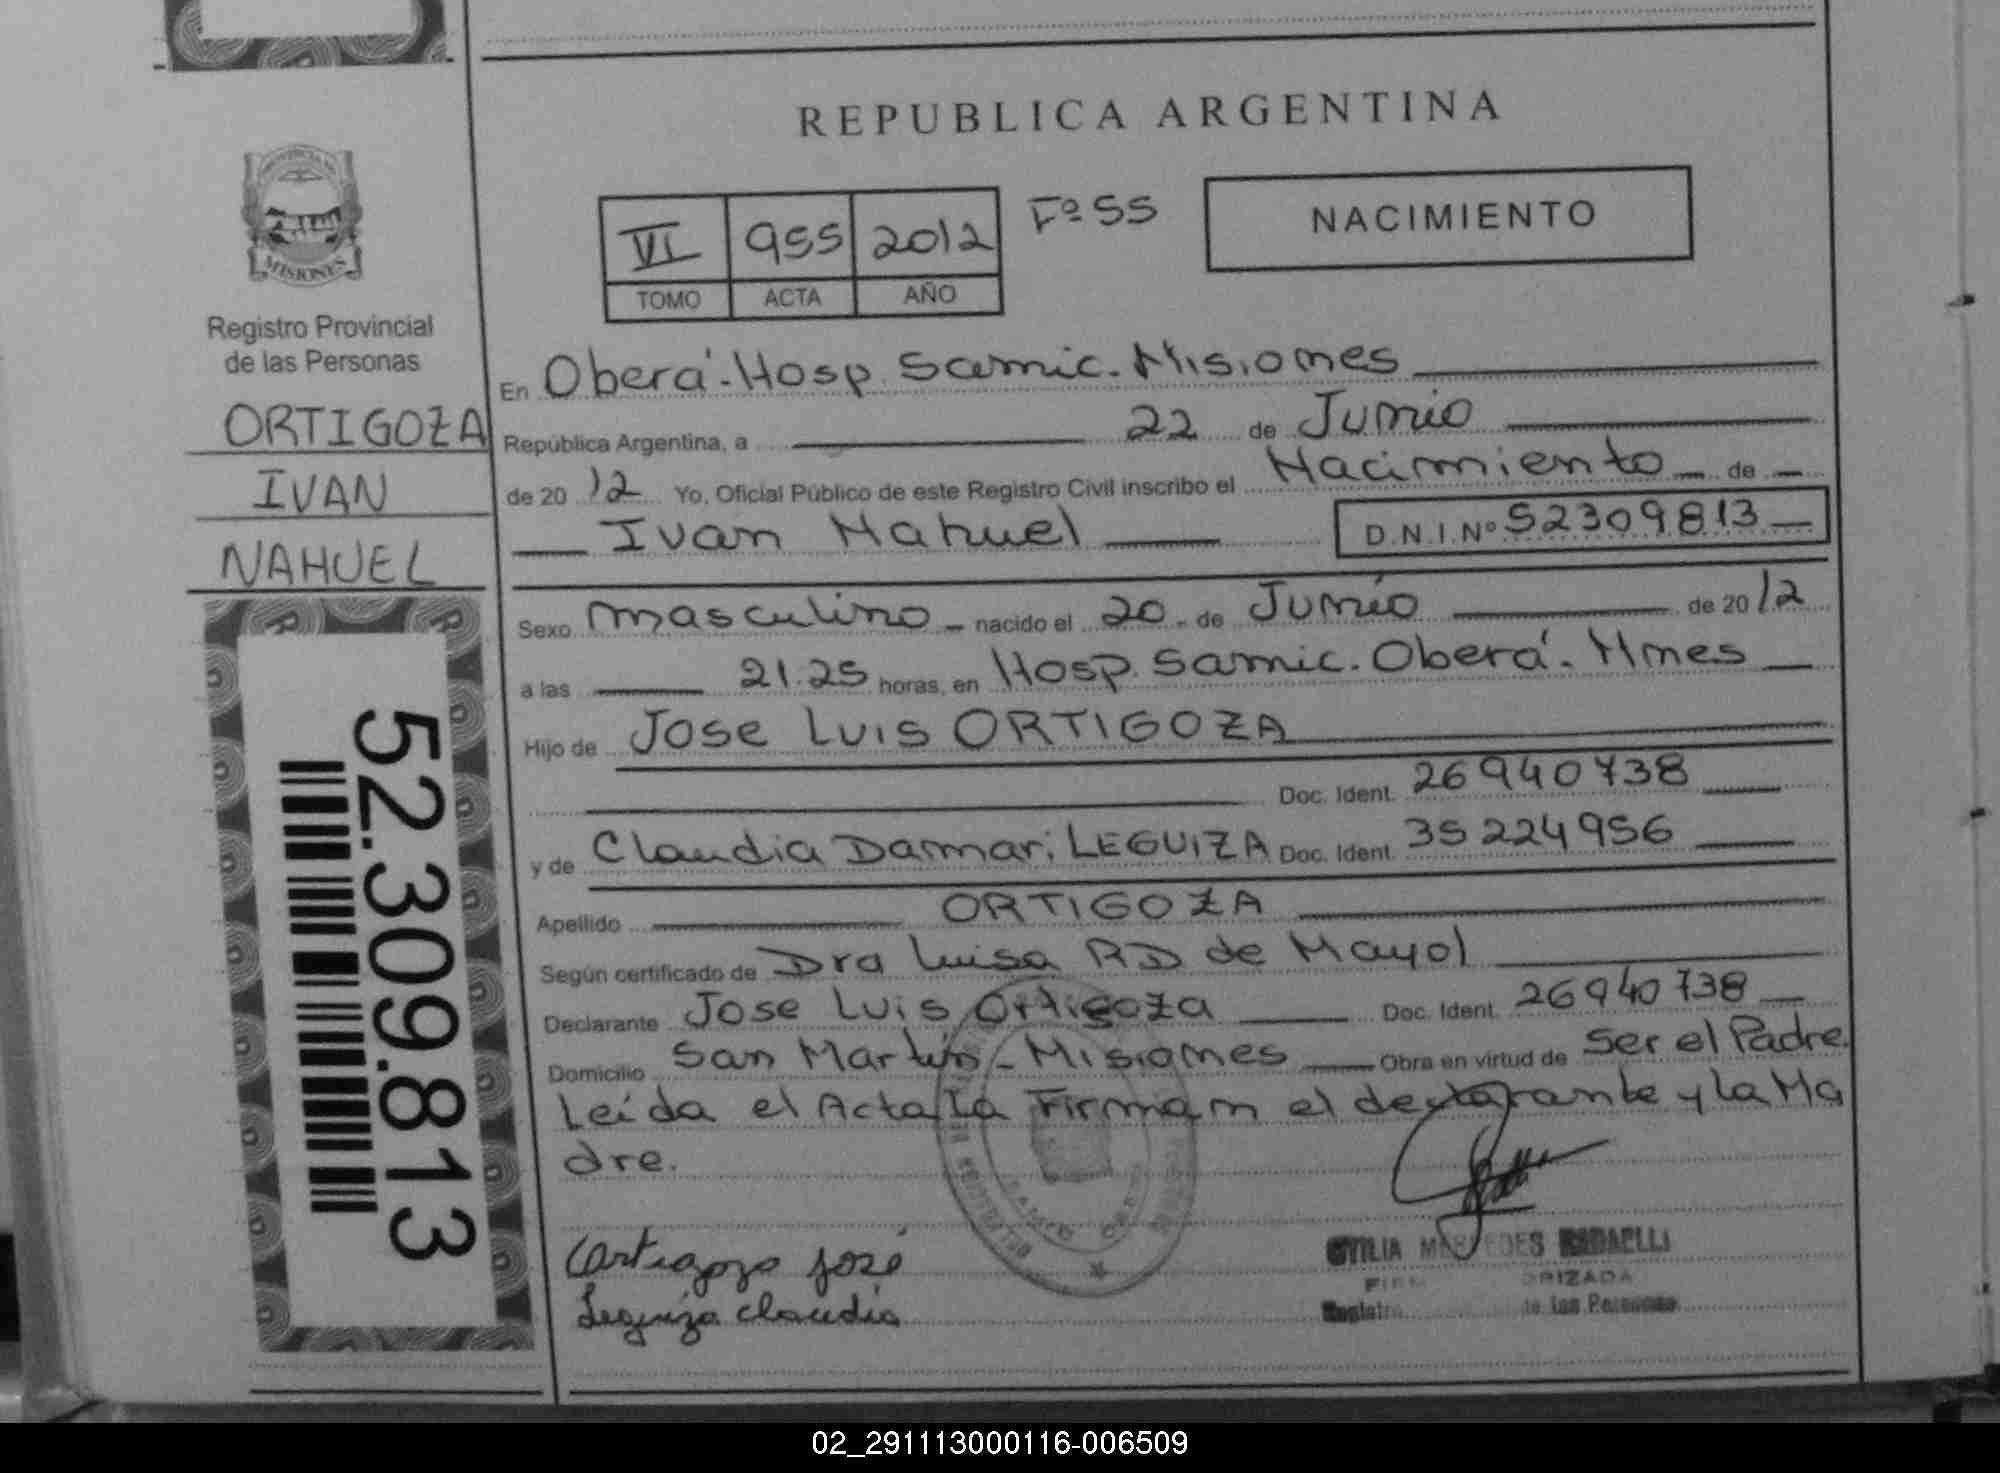 REPUBLICA ARGENTINA
PROVINCIA DE
MISIONES
Registro Provincial
de las Personas
ORTIGOZA
IVAN
NAHUEL
52.309.813
VI 955 2012 Fº 55
TOMO ACTA AÑO
NACIMIENTO
En Oberá-Hosp. Samic. Misiones
República Argentina, a 22 de Junio
de 2012 Yo, Oficial Público de este Registro Civil inscribo el Nacimiento de
Ivan Nahuel D.N.I.Nº 52309813
Sexo masculino nacido el 20 de Junio de 2012
a las 21.25 horas, en Hosp. Samic. Oberá. Mnes
Hijo de Jose Luis ORTIGOZA
Doc. Ident. 26940738
y de Claudia Damari LEGUIZA Doc. Ident. 35224956
Apellido ORTIGOZA
Según certificado de Dra Luisa RD de Mayol
Declarante Jose Luis Ortigoza Doc. Ident. 26940738
Domicilio San Martín - Misiones Obra en virtud de Ser el Padre.
Leída el Acta La Firman el declarante y la Ma
dre.
Ortigoza José
Leguiza Claudia
MERCEDES RADAELLI
Registro de las Personas
02_291113000116-006509